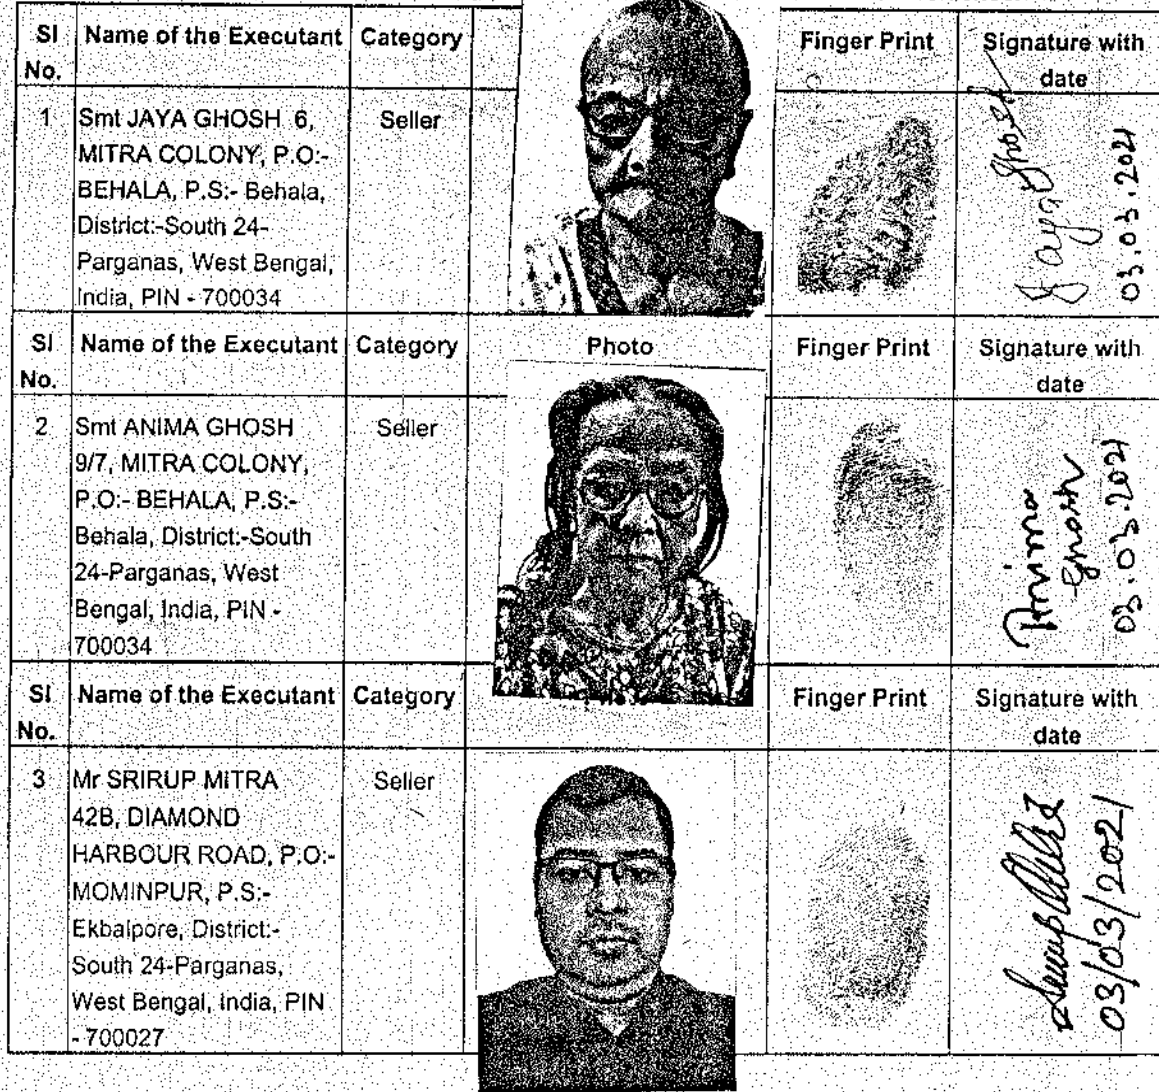 Sl No. Name of the Executant Category Finger Print Signature with date
1 Smt JAYA GHOSH 6, Seller
MITRA COLONY, P.O:-
BEHALA, P.S:- Behala,
District:-South 24-
Parganas, West Bengal,
India, PIN - 700034
Jaya Ghosh
03.03.2021
Sl No. Name of the Executant Category Photo Finger Print Signature with date
2 Smt ANIMA GHOSH Seller
9/7, MITRA COLONY,
P.O:- BEHALA, P.S:-
Behala, District:-South
24-Parganas, West
Bengal, India, PIN -
700034
Anima
Ghosh
03.03.2021
Sl No. Name of the Executant Category Finger Print Signature with date
3 Mr SRIRUP MITRA Seller
42B, DIAMOND
HARBOUR ROAD, P.O:-
MOMINPUR, P.S:-
Ekbalpore, District:-
South 24-Parganas,
West Bengal, India, PIN
- 700027
Srirup Mitra
03/03/2021